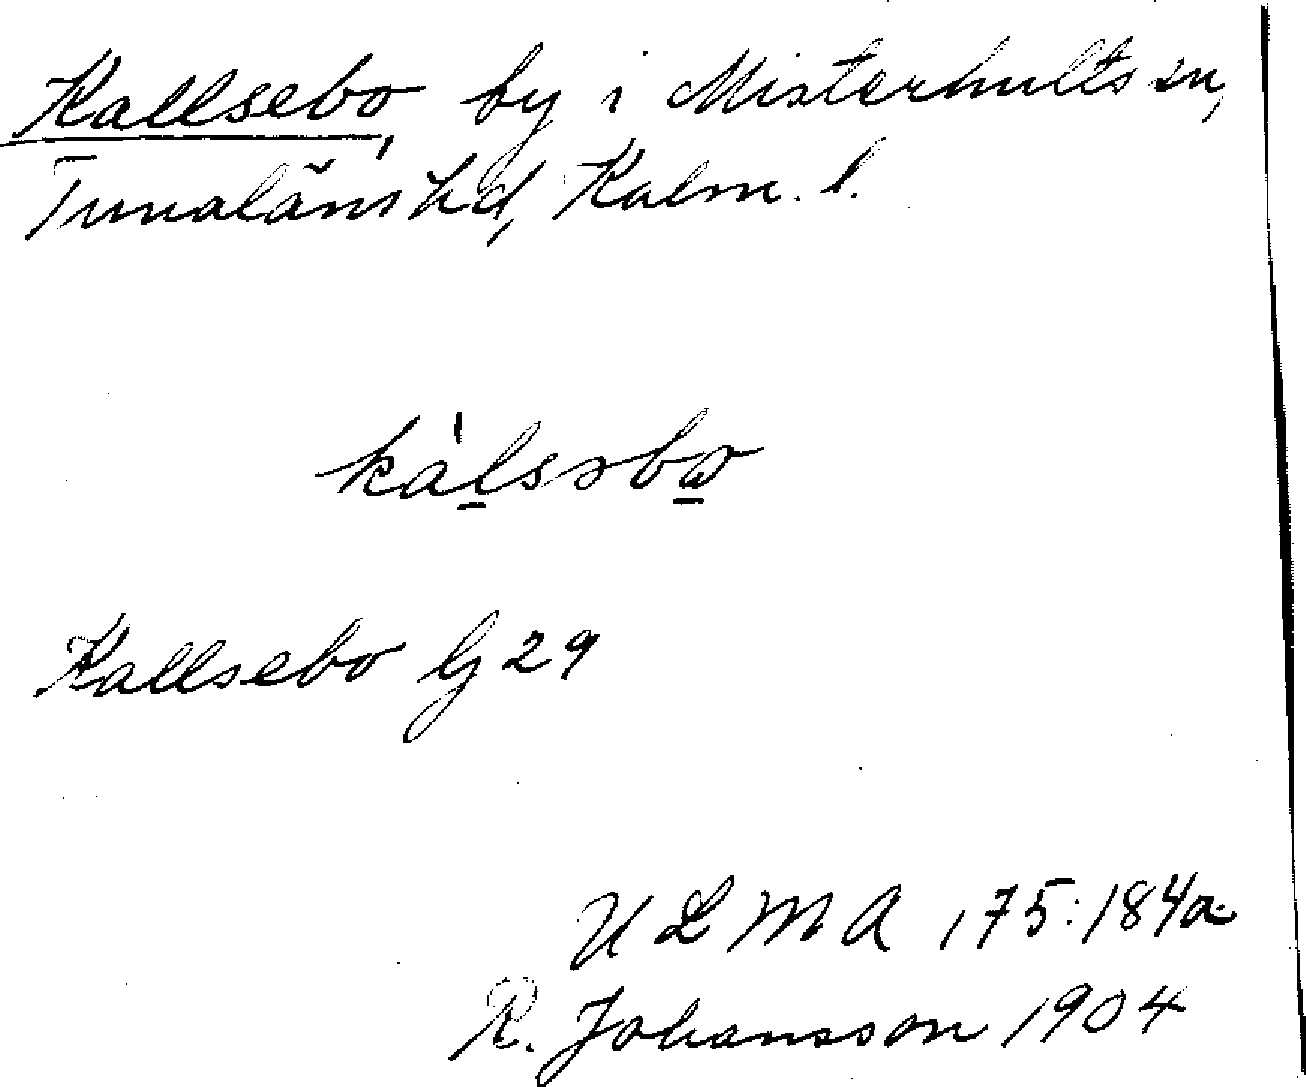 Kallsebo, by i Misterhults sn,
Tunaläns hd, Kalm. l.
kálssbω
Kallsebo Gj 29
ULMA 175:184a
R. Johansson 1904